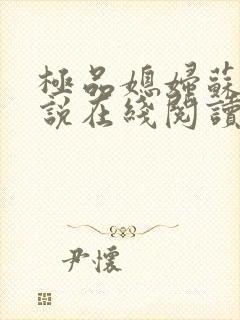 極品媳婦蘇
說在綫閱讀
尹懷